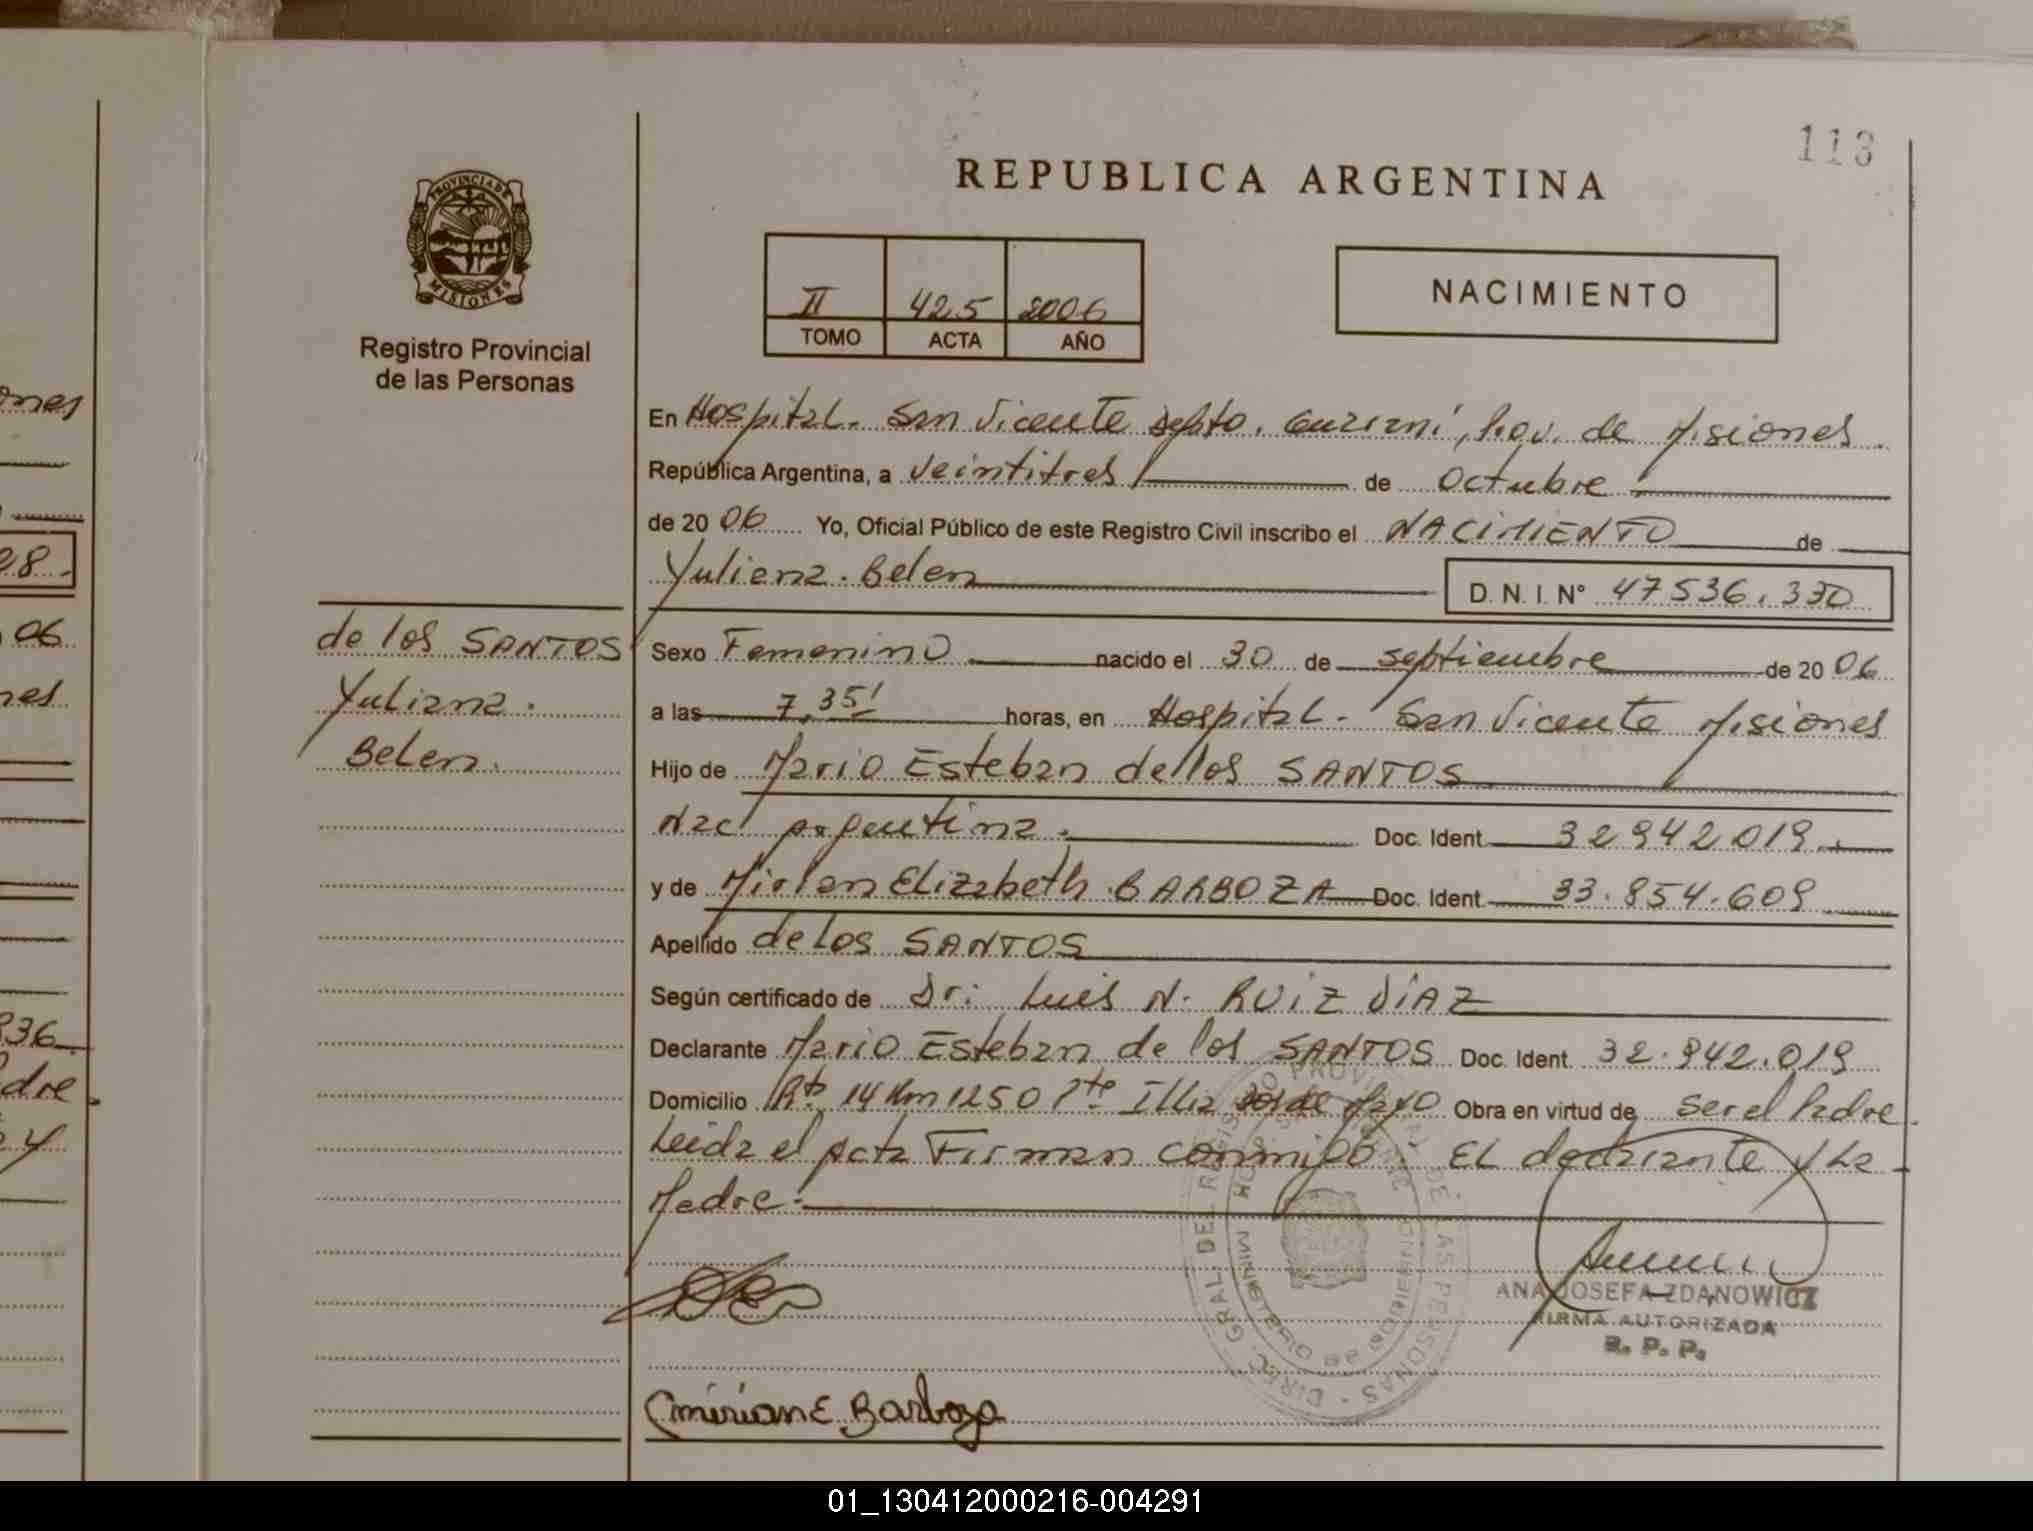 113
REPUBLICA ARGENTINA
PROVINCIA DE
MISIONES
Registro Provincial
de las Personas
II 425 2006
TOMO ACTA AÑO
NACIMIENTO
En Hospital. San Vicente Depto. Guaraní, Prov. de Misiones.
República Argentina, a veintitres de Octubre
de 2006 Yo, Oficial Público de este Registro Civil inscribo el NACIMIENTO de
Yuliana. Belen D. N. I. N° 47536.330
de los SANTOS
Yuliana.
Belen.
Sexo Femenino nacido el 30 de septiembre de 2006
a las 7,35' horas, en Hospital. San Vicente Misiones
Hijo de Mario Esteban de los SANTOS
Nac. argentina. Doc. Ident. 32942019.
y de Mirian Elizabeth BARBOZA Doc. Ident. 33.854.609
Apellido de los SANTOS
Según certificado de Dr. Luis N. RUIZ DíAZ
Declarante Mario Esteban de los SANTOS Doc. Ident. 32.942.019
Domicilio Rta 14 Km 1250 Pte Illia de Mayo Obra en virtud de ser el Padre
Leida el acta Firman conmigo. EL declarante y la
Madre.
ANA JOSEFA ZDANOWICZ
FIRMA AUTORIZADA
R. P. P.
DIREC. GRAL. DEL REGISTRO PROVINCIAL DE LAS PERSONAS
MINISTERIO DE GOBIERNO
Mirian E Barboza
ones
28.
06
nes
836
adre
01_130412000216-004291